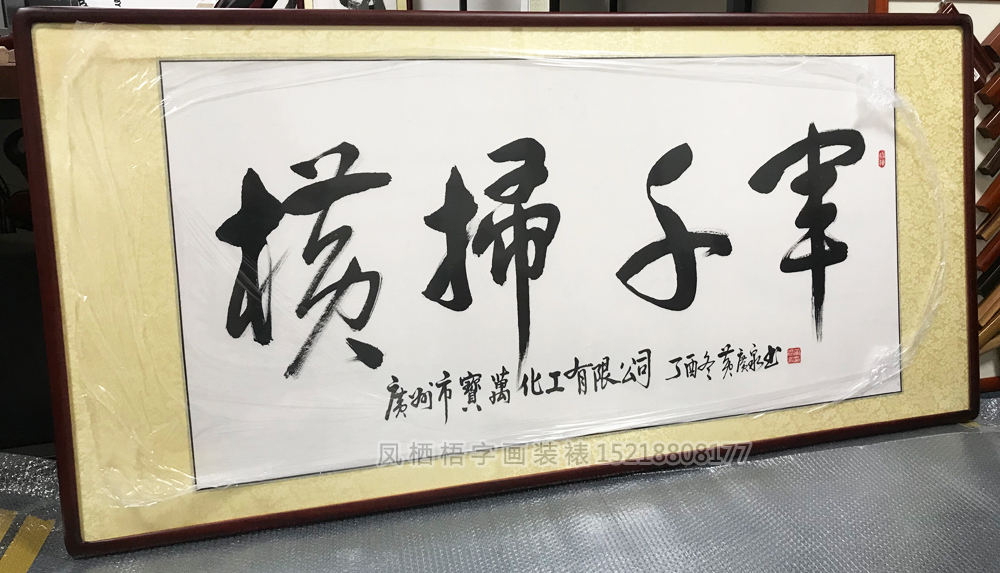 橫掃千軍
廣州市寶萬化工有限公司 丁酉冬黄廣泉书
凤栖梧字画装裱15218808177